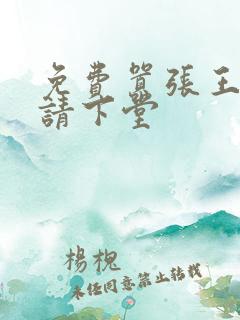 免費囂張王
請下堂
楊槐
未经同意禁止转载